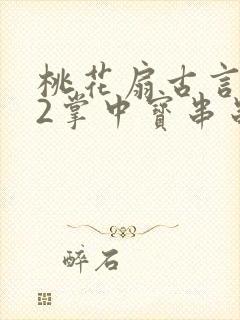 桃花扇古言
2掌中寳串
醉石